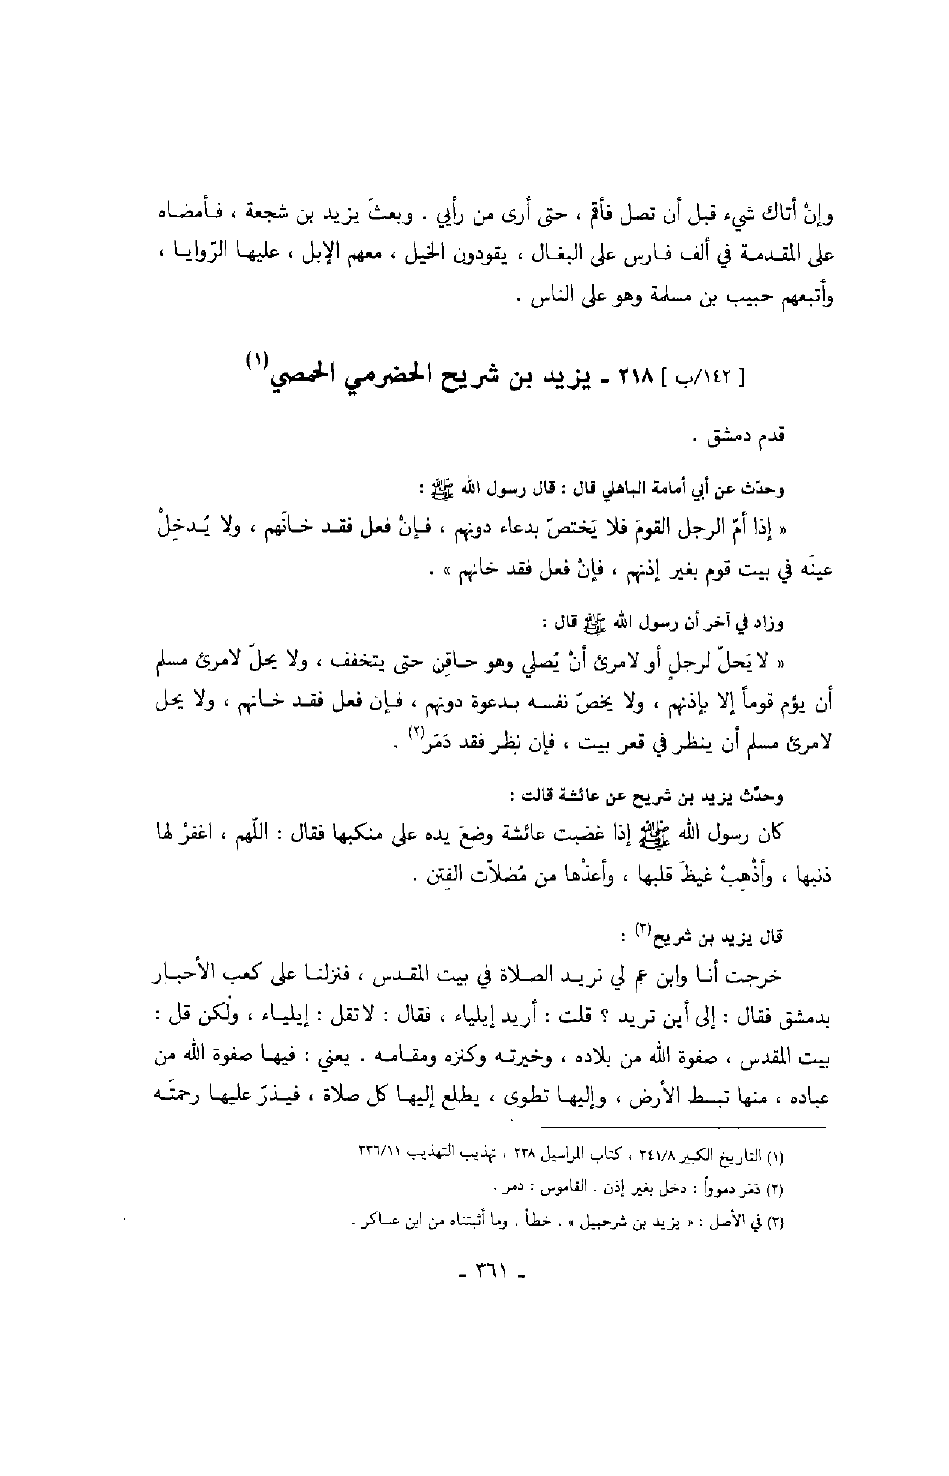 وإنْ أتاك شيء قبل أن تصل فأقم ، حتى أرى من رأيي . وبعثَ يزيد بن شجعة ، فأمضاه
على المقدمة في ألف فارس على البغال ، يقودون الخيل ، معهم الإبل ، عليها الرّوايا ،
وأتبعهم حبيب بن مسلمة وهو على الناس .
[ ١٤٢/ب ] ٢١٨ - يزيد بن شريح الحضرمي الحمصي(١)
قدم دمشق .
وحدّث عن أبي أمامة الباهلي قال : قال رسول الله ﷺ :
« إذا أمّ الرجل القومَ فلا يَختصّ بدعاء دونهم ، فإنْ فعل فقد خانَهم ، ولا يُدخِلْ
عينَه في بيت قوم بغير إذنهم ، فإنْ فعل فقد خانهم » .
وزاد في آخر أن رسول الله ﷺ قال :
« لا يَحلّ لرجلٍ أو لامرئ أنْ يُصلي وهو حاقِن حتى يتخفف ، ولا يحلّ لامرئ مسلم
أن يؤم قوماً إلا بإذنهم ، ولا يخصّ نفسه بدعوة دونهم ، فإن فعل فقد خانهم ، ولا يحل
لامرئ مسلم أن ينظر في قعر بيت ، فإن نظر فقد دَمَر(٢) .
وحدّث يزيد بن شريح عن عائشة قالت :
كان رسول الله ﷺ إذا غضبت عائشة وضعَ يده على منكبها فقال : اللّهم ، اغفرْ لها
ذنبها ، وأذْهِبْ غيظَ قلبها ، وأعذْها من مُضلاّت الفِتن .
قال يزيد بن شريح(٣) :
خرجت أنا وابن عم لي نريد الصلاة في بيت المقدس ، فنزلنا على كعب الأحبار
بدمشق فقال : إلى أين تريد ؟ قلت : أريد إيلياء ، فقال : لا تقل : إيلياء ، ولْكن قل :
بيت المقدس ، صفوة الله من بلاده ، وخيرته وكنزه ومقامه . يعني : فيها صفوة الله من
عباده ، منها تبسط الأرض ، وإليها تطوى ، يطلع إليها كل صلاة ، فيذرّ عليها رحمتَه
(١) التاريخ الكبير ٣٤١/٨ ، كتاب المراسيل ٢٣٨ ، تهذيب التهذيب ٣٣٦/١١
(٢) دَمَر دموراً : دخل بغير إذن . القاموس : دمر .
(٣) في الأصل : « يزيد بن شرحبيل » . خطأ . وما أثبتناه من ابن عساكر .
- ٣٦١ -